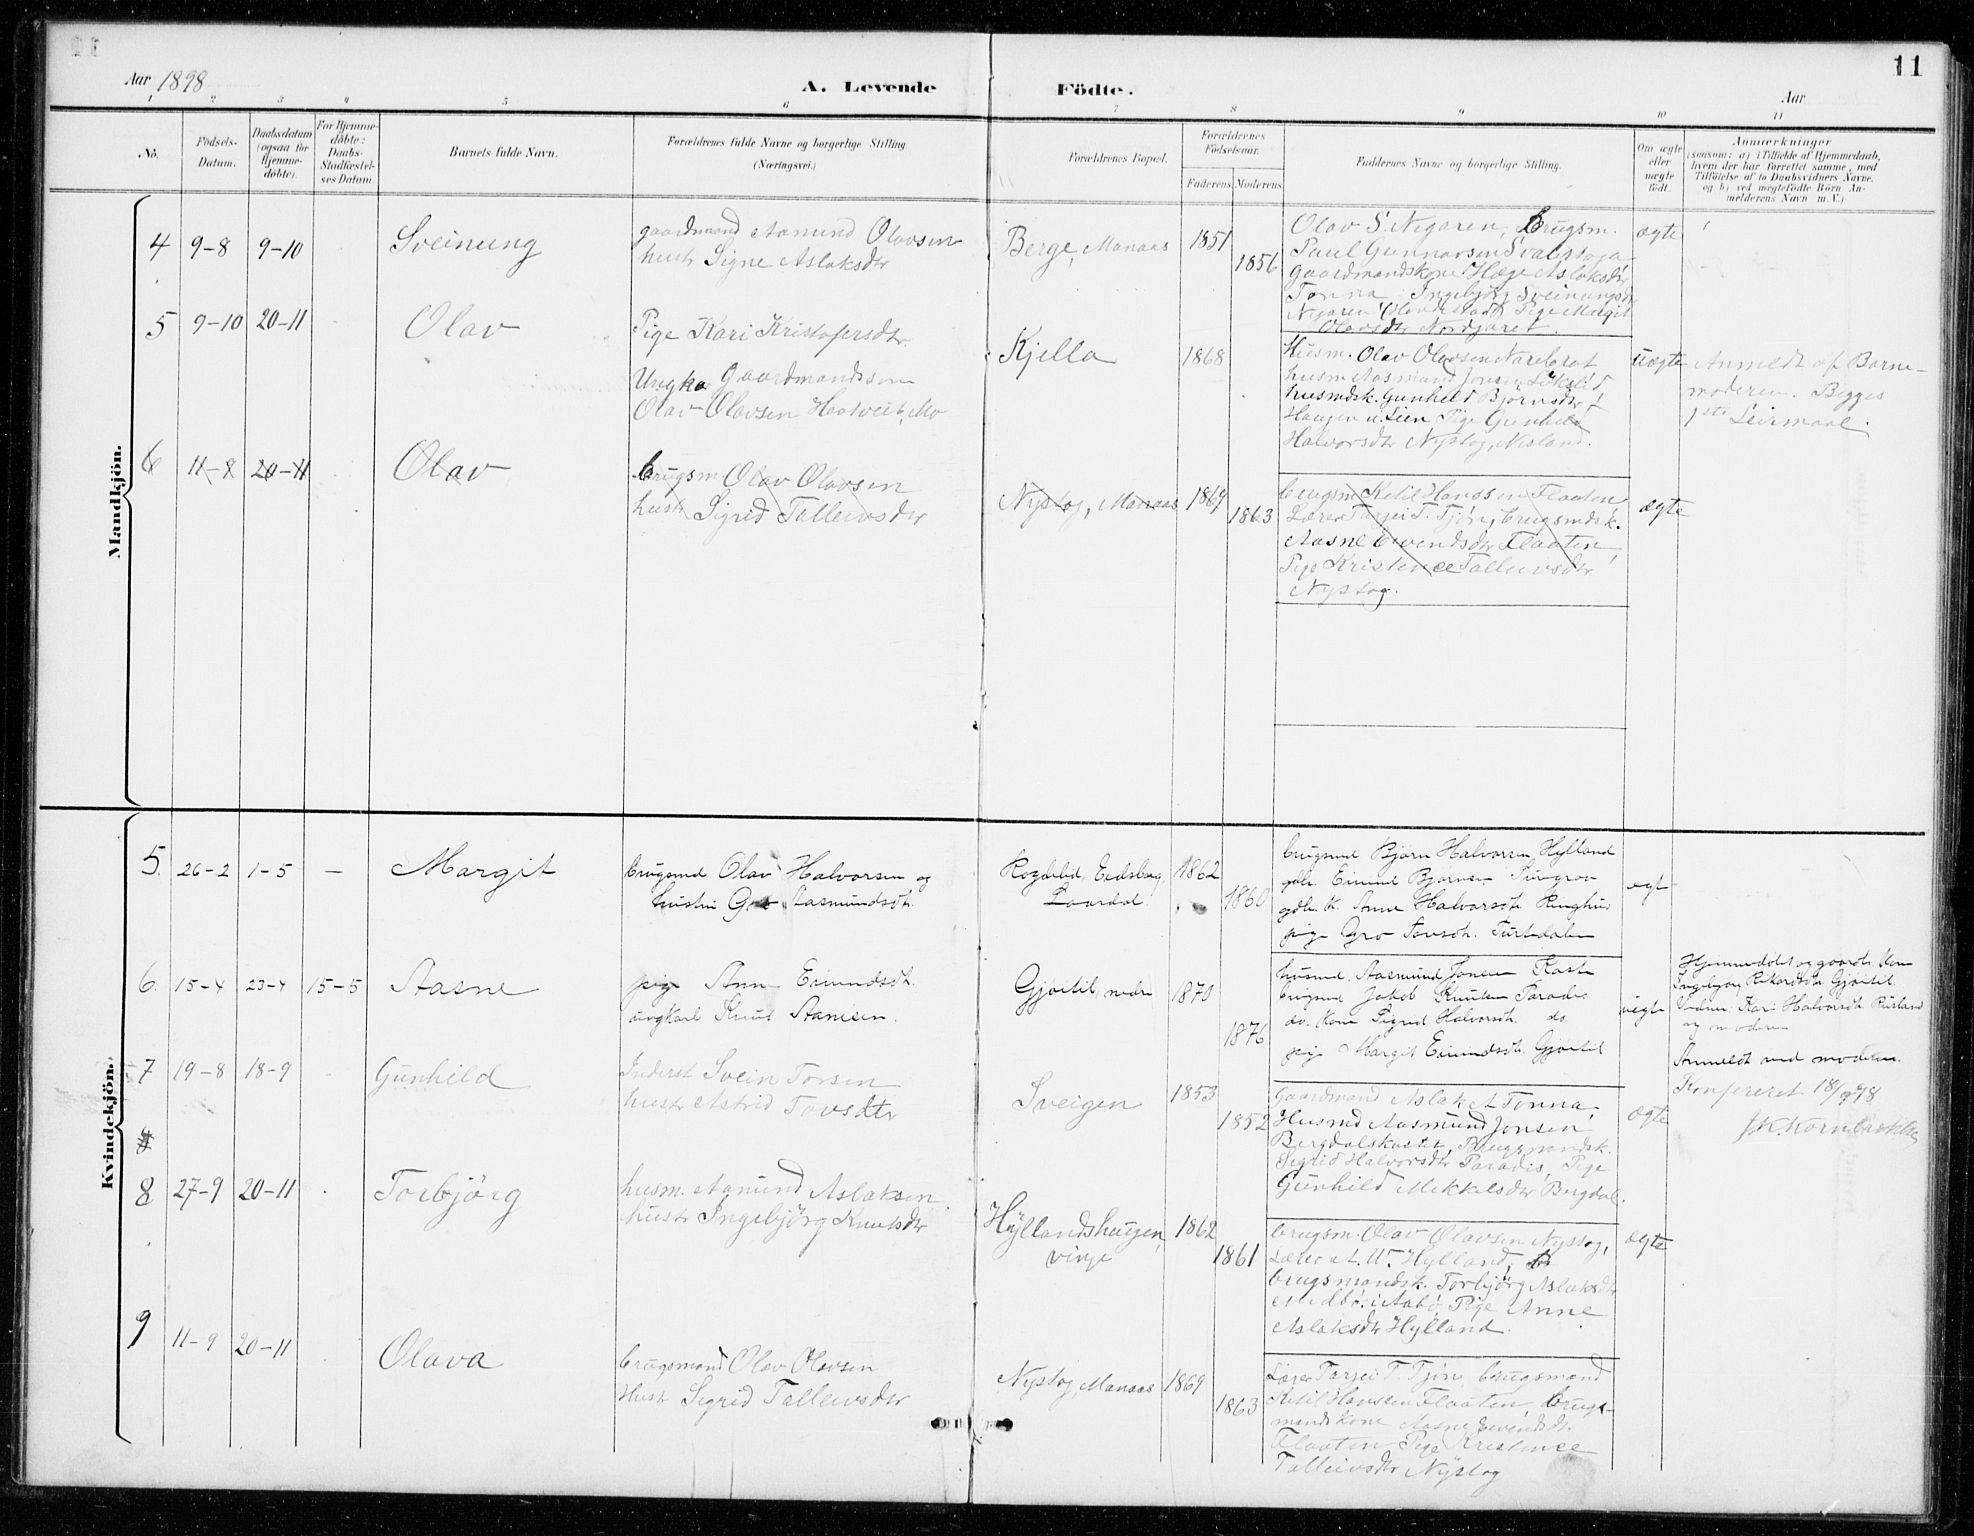 11
Aar 1898
A. Levende Födte.
Aar
1 2 3 4 5 6 7 8 9 10 11
No. Födsels-Datum. Daabsdatum (ogsaa för Hjemme-döbte). For Hjemme-döbte: Daabs-Stadfæstel-ses Datum. Barnets fulde Navn. Forældrenes fulde Navne og borgerlige Stilling (Næringsvei.) Forældrenes Bopæl. Forældrenes Födselsaar. Faderens Moderens Faddernes Navne og borgerlige Stilling. Om ægte eller uægte födt. Anmærkninger
(saasom: a) i Tilfælde af Hjemmedaab,
hvem der har forrettet samme, med
Tilföielse af to Daabsvidners Navne.
og b) ved uægtefödte Börn An-
melderens Navn m. V.)
Mandkjön.
4 9-8 9-10 Sveinung
gaardmand Aamund Olavsen
hustr Signe Aslaksdtr
Berge, Manaas 1851 1856
Olav S. Nigaren, Brugsm.
Paul Gunnarsen Svalestoga
gaardmandskone Hæge Aslaksdtr
Tonna, Ingebjörg Sveinungsdtr
Nigaren Pige Margit
Olavsdtr Nordgaret.
ægte
5 9-10 20-11 Olav
Pige Kari Kristofersdtr
Ungka Gaardmandssøn
Olav Olavsen Haatveit, Mo
Kjella 1868
Husm. Olav Olavsen
husm Aasmund Jonsen
husmdsk. Gunhild Bjørnsdtr
Haugen u. Lien Pige Gunhild
Halvorsdtr Nystog, Nesland.
uægte
Anmeldt af Barne-
moderen. Begges
1ste Leirmaal.
6 11-8 20-11 Olav
brugsm Olav Olavsen
hustr Sigrid Talleivsdtr
Nystog, Manaas 1869 1863
brugsm Ketil Hanssen Flaaten
Lærer Tarjei T. Tjön, brugsmdsk.
Aasne Eivendsdtr Flaaten
Pige Kristence Talleivsdtr
Nystog.
ægte
Kvindekjön.
5. 26-2 1-5 — Margit
brugsmd Olav Halvorsen og
hustru Gro Aasmundsdt.
Rogdelid, Eidsborg
Laardal 1862 1860
brugsmd Bjørn Halvorsen Hylland
gdbr. Eivind Bjørnsen
gdbr. k. Anne Halvorsdt. Ringhus
pige Gro Tovsdt. Turtedalen
egt
6. 15-4 23-4 15-5 Aasne
pige Ann Eivindsdt.
ungkarl Knut Aamsen.
Gjøstil, nedre 1870 1876
husmd. Aasmund Jonsen Kaste
brugsmd Jakob Knutsen Paradis
do. kone Sigrid Halvorsdt. do.
pige Margit Eivindsdt. Gjøstil
uegte
Hjemmedøbt og gaardb. kone
Ingebjør Rikardsdt. Gjøstil.
Vidner: Kari Halvorsdt. Rusland
og moderen
Anmeldt ved moderen.
7 19-8 18-9 Gunhild
Inderst Svein Torsen
hustr Astrid Tovsdtr
Sveigen 1853 1852
Gaardmand Aslak A Tonna,
Husmd Aasmund Jonsen
Bergdalskastet, Brugsmandsk.
Sigrid Halvorsdtr Paradis, Pige
Gunhild Mikkelsdtr Bergdal.
ægte
Konfereret 18/9 98
8 27-9 20-11 Torbjörg
husm. Aamund Aslaksen
hustr Ingebjörg Knutsdtr
Hyllandshaugen,
vinje 1862 1861
brugsm. Olav Olavsen Nystog,
Lærer Hylland,
brugsmandsk. Torbjörg Aslaksdtr
Pige Anne
Aslaksdtr Hylland.
ægte
9 11-9 20-11 Olava
brugsmand Olav Olavsen
Hustr Sigrid Talleivsdtr
Nystog, Manaas 1869 1863
Lærer Tarjei T. Tjön, brugsmand
Ketil Hanssen Flaaten, brugs-
mandskone Aasne Eivendsdtr
Flaaten, Pige Kristence
Talleivsdtr Nystog